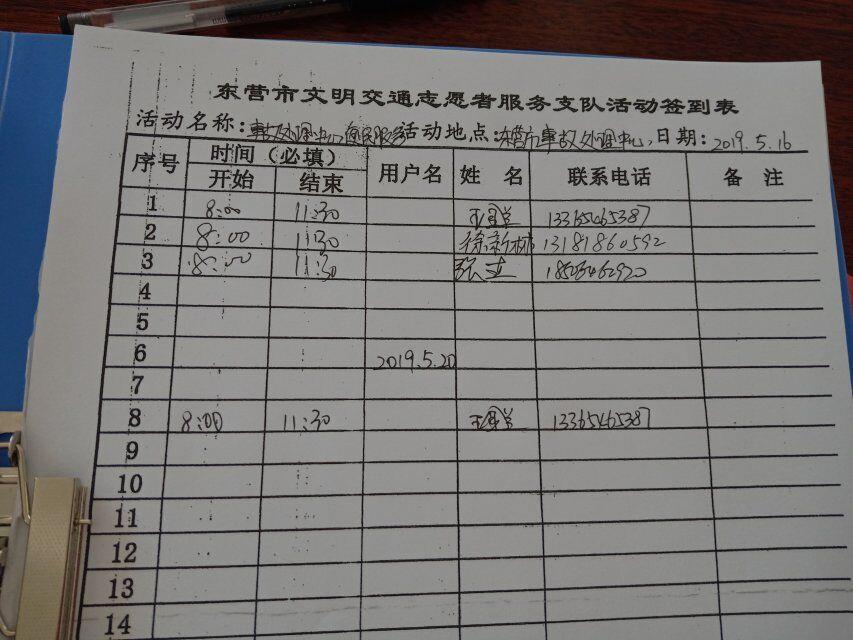 东营市文明交通志愿者服务支队活动签到表
活动名称:事故处理中心便民服务 活动地点:东营市事故处理中心 日期:2019.5.16
序号 时间(必填) 用户名 姓 名 联系电话 备 注
开始 结束
1 8:00 11:30 13365465387
2 8:00 11:30 徐新林 13181860592
3 8:00 11:30 张 18505462920
4
5
6 2019.5.20
7
8 8:00 11:30 13365465387
9
10
11
12
13
14